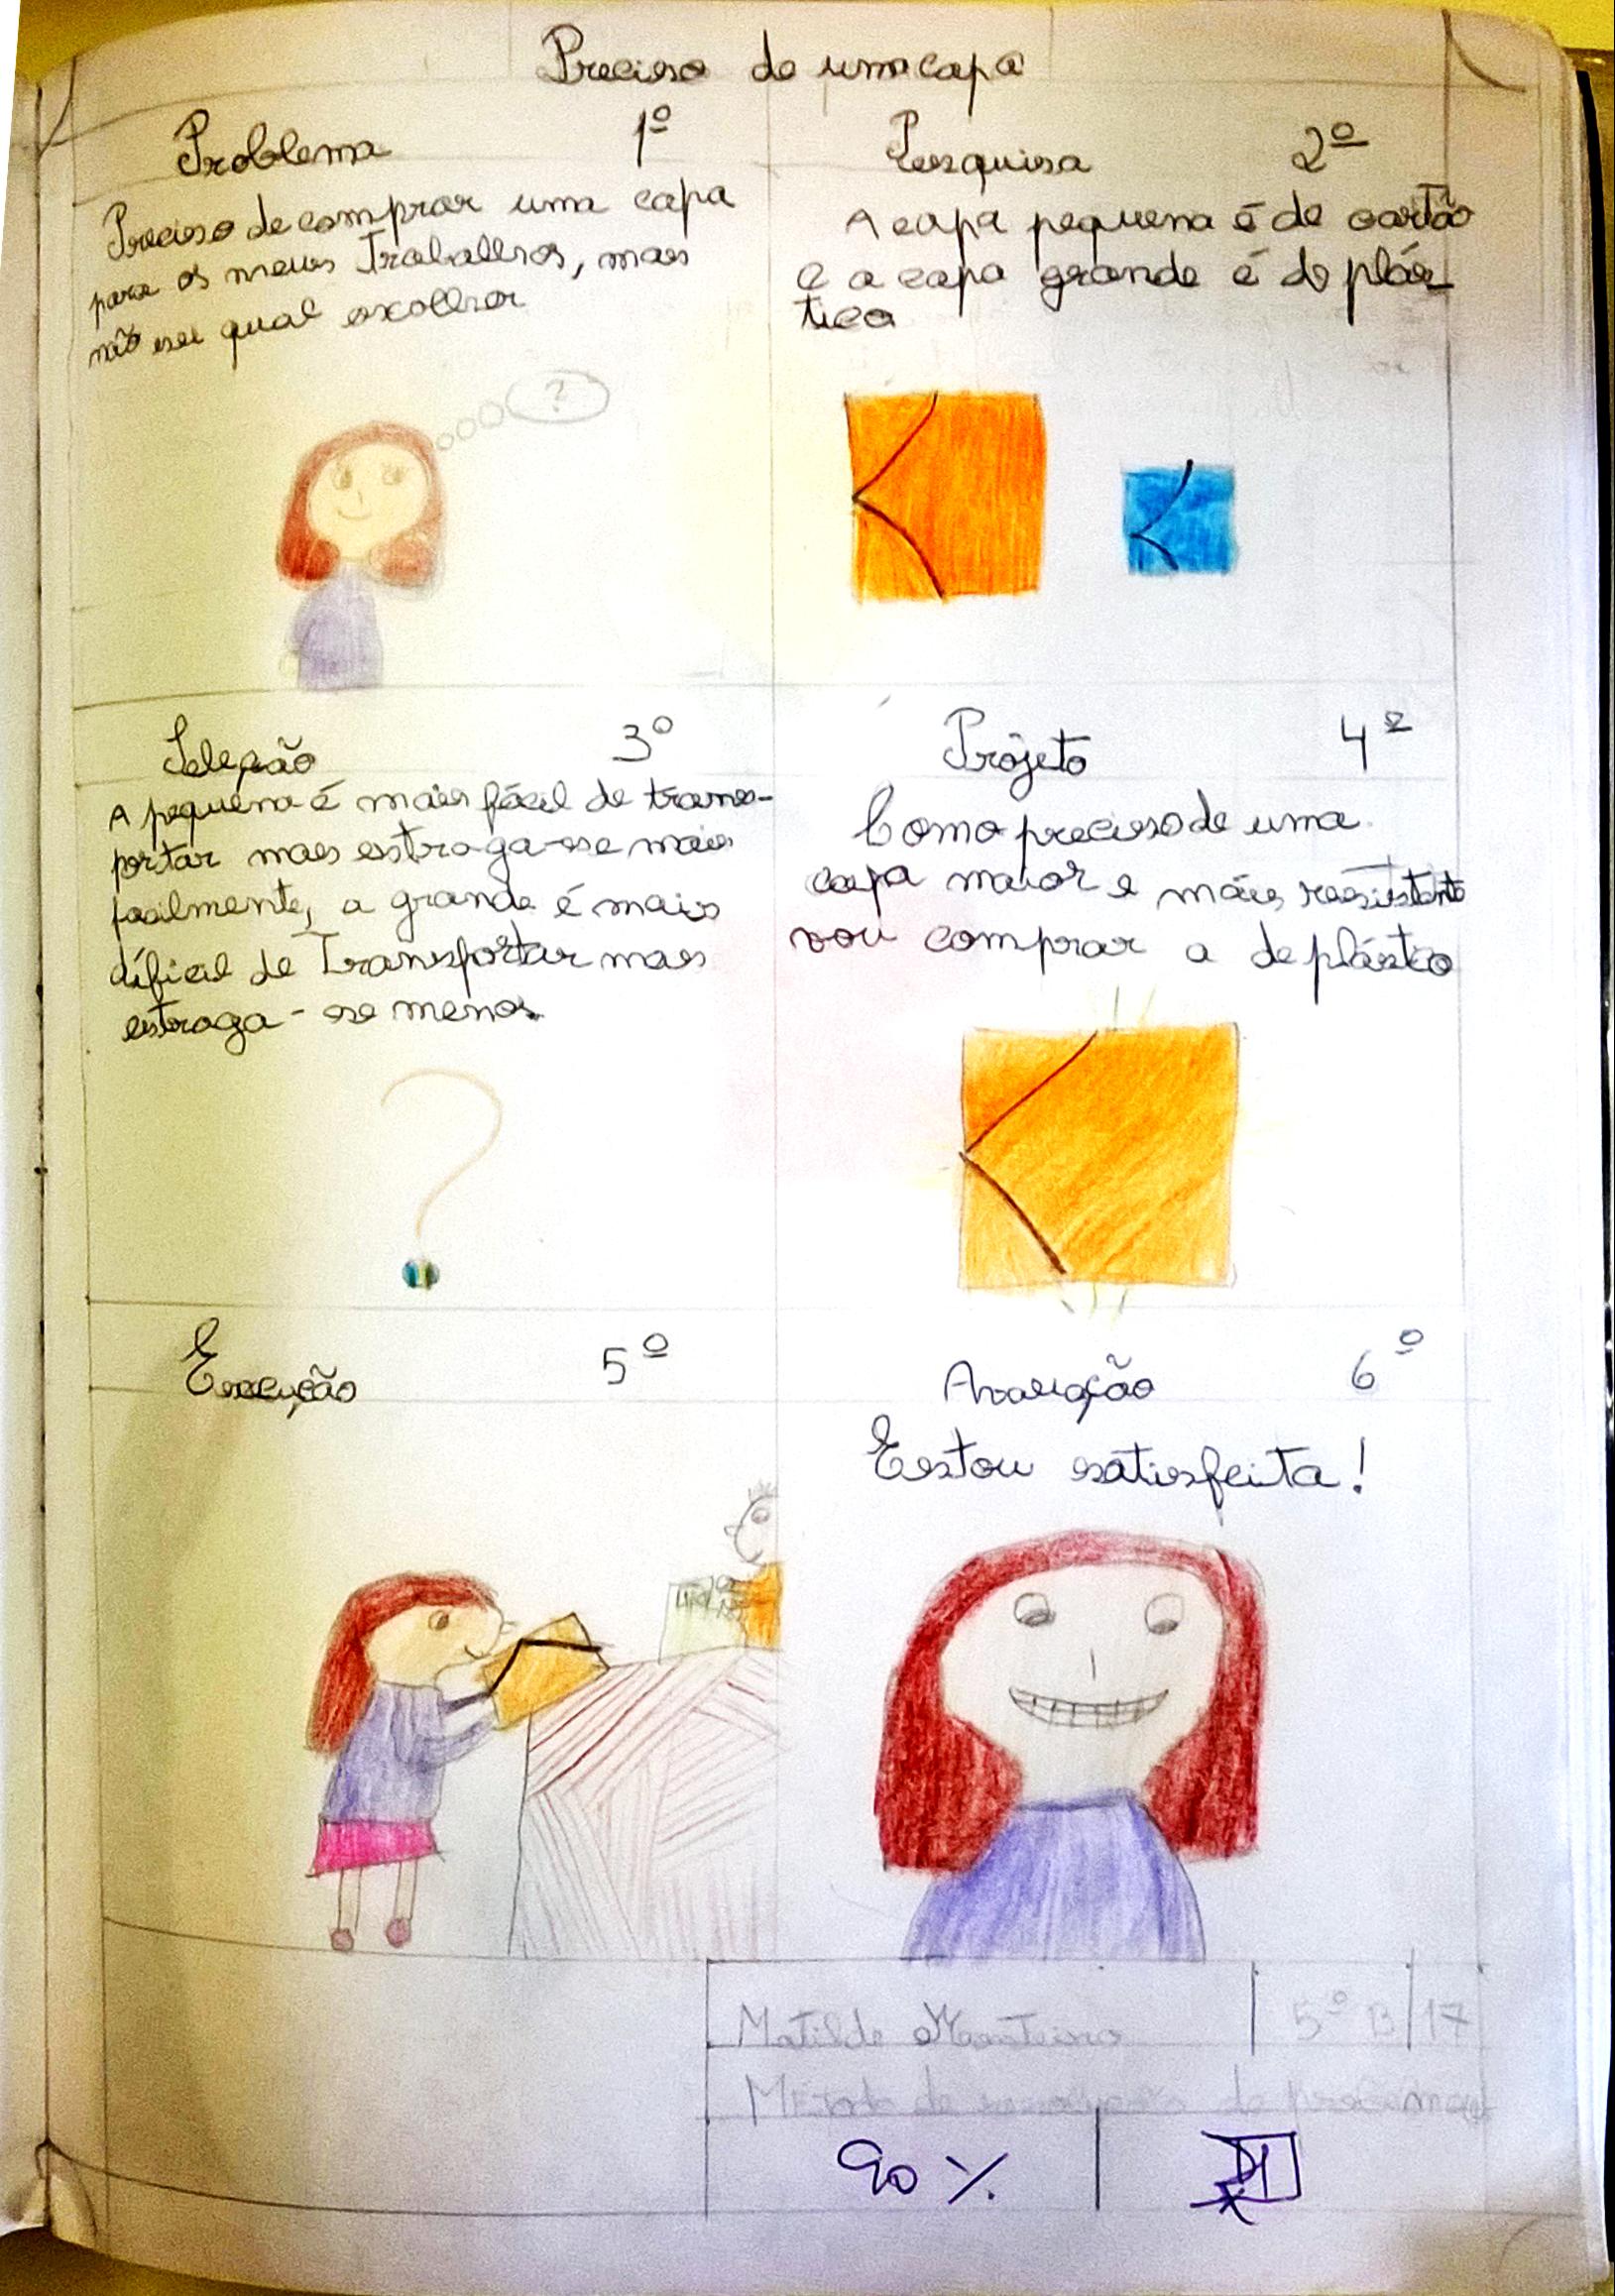 Preciso de uma capa
Problema 1º
Preciso de comprar uma capa
para os meus Trabalhos, mas
não sei qual escolher
?
Pesquisa 2º
A capa pequena é de cartão
e a capa grande é de plás-
tico
Seleção 3º
A pequena é mais fácil de trans-
portar mas estraga-se mais
facilmente, a grande é mais
díficil de Transportar mas
estraga-se menos.
?
Projeto 4º
Como preciso de uma
capa maior e máis resistente
vou comprar a de plástico
Execução 5º
Avaliação 6º
Estou satisfeita!
Matilde Monteiro 5º B 17
Método de resolução de problemas
90 %